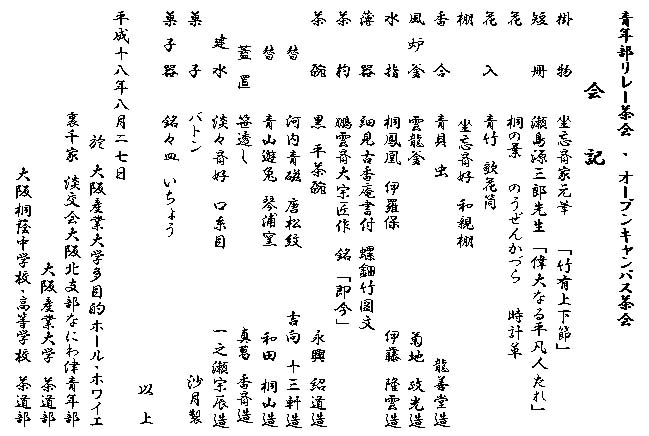 青年部リレー茶会 ・ オープンキャンパス茶会
会記
掛物 坐忘斎家元筆 「竹有上下節」
短冊 瀬島源三郎先生 「偉大なる平凡人たれ」
花 桐の葉 のうぜんかづら 時計草
花入 青竹 歌花筒
棚 坐忘斎好 和親棚
香合 青貝 虫 龍善堂造
風炉釜 雲龍釜 菊地 政光造
水指 桐鳳凰 伊羅保 伊藤 隆雲造
薄器 細見古香庵書付 螺鈿竹図文
茶杓 鵬雲斎大宗匠作 銘「即今」
茶碗 黒 平茶碗 永興 紹道造
替 河内青磁 唐松紋 吉向 十三軒造
替 青山遊兎 琴浦窯 和田 桐山造
蓋置 笹透し 真葛 香斎造
建水 淡々斎好 口糸目 一之瀬宗辰造
菓子 バトン 沙月製
菓子器 銘々皿 いちょう
以上
平成十八年八月二七日
於 大阪産業大学多目的ホール・ホワイエ
裏千家 淡交会大阪北支部なにわ津青年部
大阪産業大学 茶道部
大阪桐蔭中学校・高等学校 茶道部